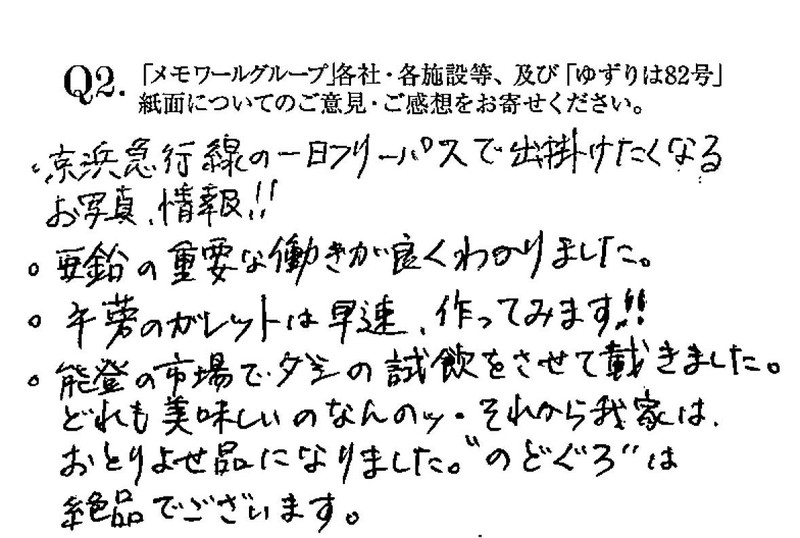 Q2.「メモワールグループ」各社・各施設等、及び「ゆずりは82号」
紙面についてのご意見・ご感想をお寄せください。
。京浜急行線の一日フリーパスで出掛けたくなる
お写真、情報!!
。亜鉛の重要な働きが良くわかりました。
。牛蒡のガレットは早速、作ってみます!!
。能登の市場でダシの試飲をさせて戴きました。
どれも美味しいのなんのッ・それから我家は、
おとりよせ品になりました。"のどぐろ"は
絶品でございます。